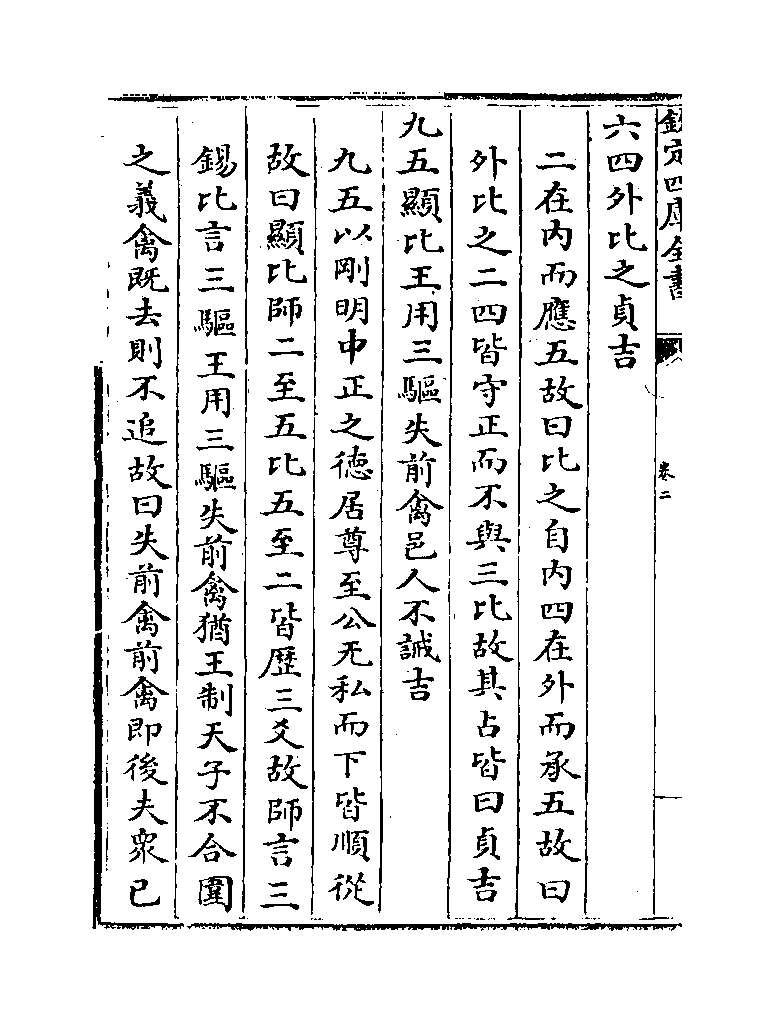 欽定四庫全書
卷二
六四外比之貞吉
二在内而應五故曰比之自内四在外而承五故曰
外比之二四皆守正而不與三比故其占皆曰貞吉
九五顯比王用三驅失前禽邑人不誡吉
九五以剛明中正之德居尊至公无私而下皆順從
故曰顯比師二至五比五至二皆歴三爻故師言三
錫比言三驅王用三驅失前禽猶王制天子不合圍
之義禽既去則不追故曰失前禽前禽即後夫衆已